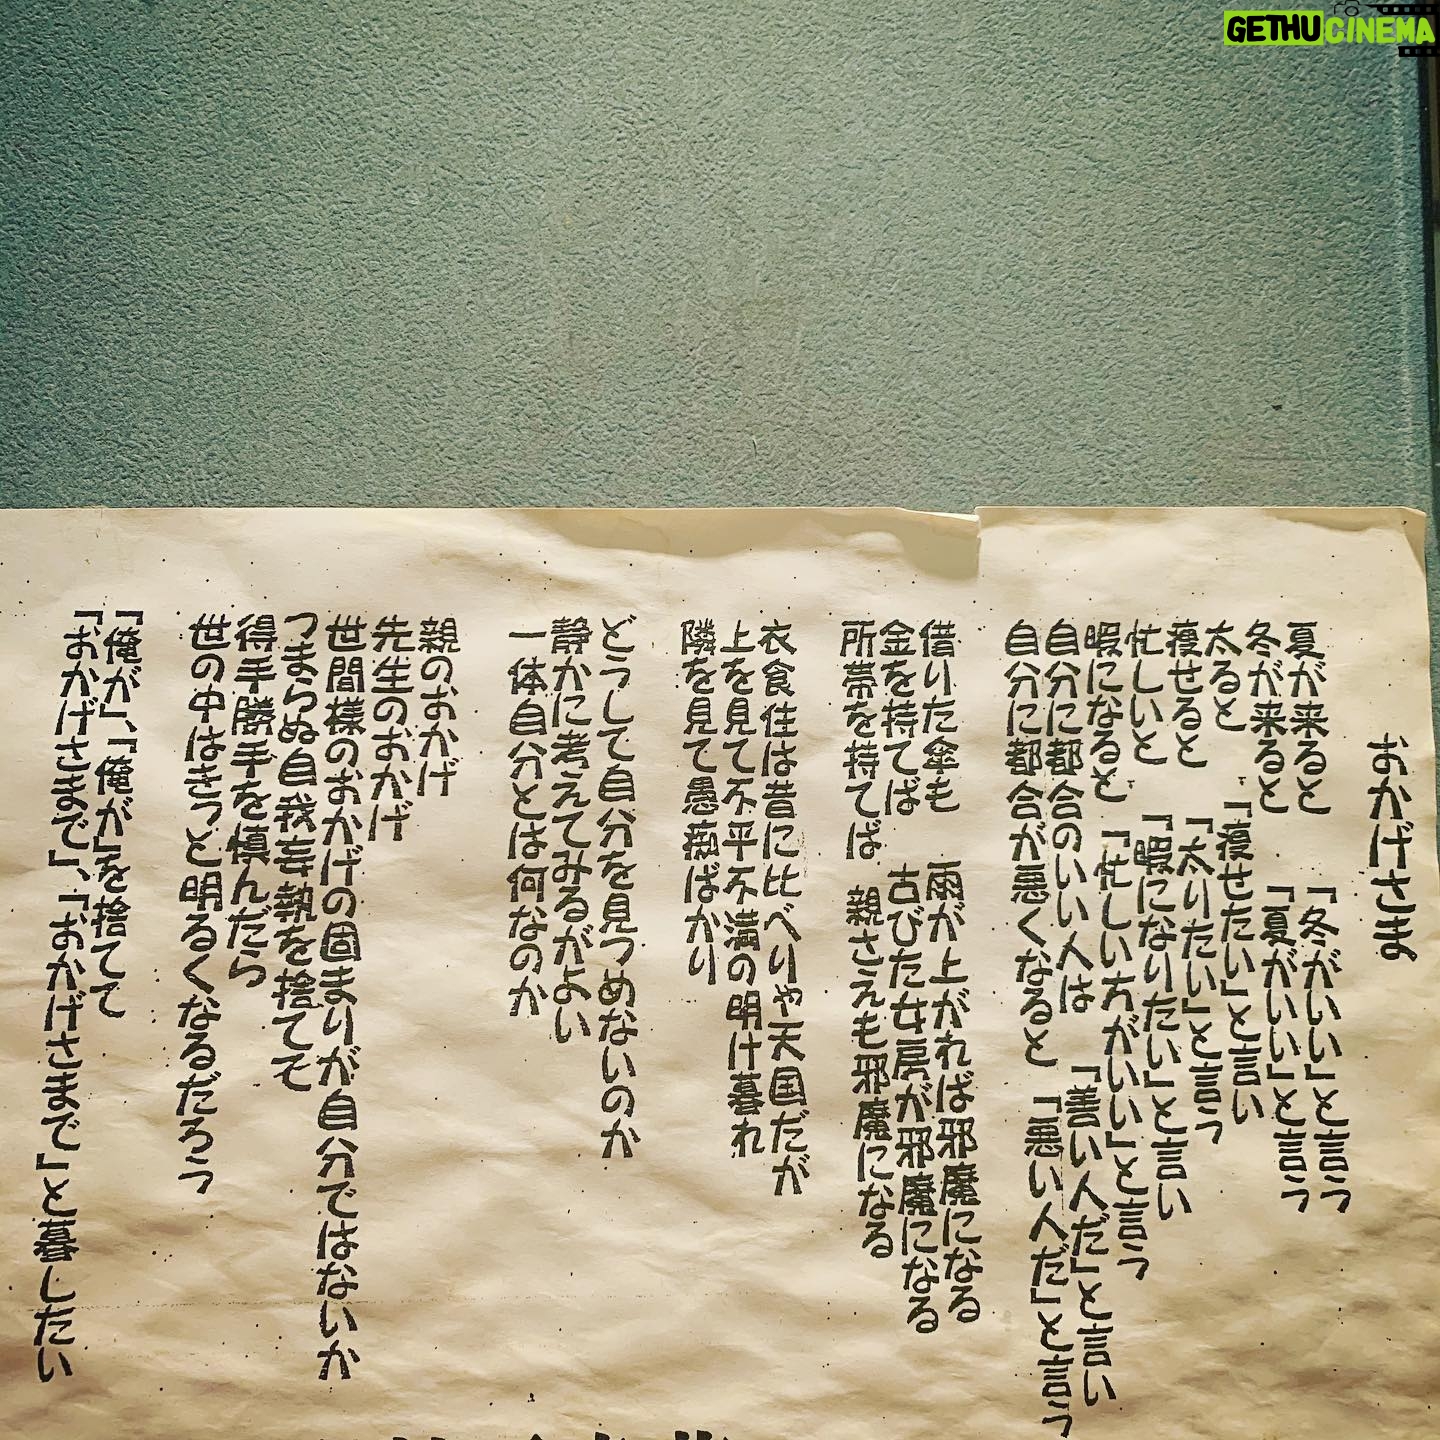 GETHUCINEMA
おかげさま
夏が来ると 「冬がいい」と言う
冬が来ると 「夏がいい」と言う
太ると 「痩せたい」と言い
痩せると 「太りたい」と言う
忙しいと 「暇になりたい」と言い
暇になると 「忙しい方がいい」と言う
自分に都合のいい人は 「善い人だ」と言い
自分に都合が悪くなると 「悪い人だ」と言う
借りた傘も 雨が上がれば邪魔になる
金を持てば 古びた女房が邪魔になる
所帯を持てば 親さえも邪魔になる
衣食住は昔に比べりゃ天国だが
上を見て不平不満の明け暮れ
隣を見て愚痴ばかり
どうして自分を見つめないのか
静かに考えてみるがよい
一体自分とは何なのか
親のおかげ
先生のおかげ
世間様のおかげの固まりが自分ではないか
つまらぬ自我妄執を捨てて
得手勝手を慎んだら
世の中はきっと明るくなるだろう
「俺が」、「俺が」を捨てて
「おかげさまで」、「おかげさまで」と暮したい